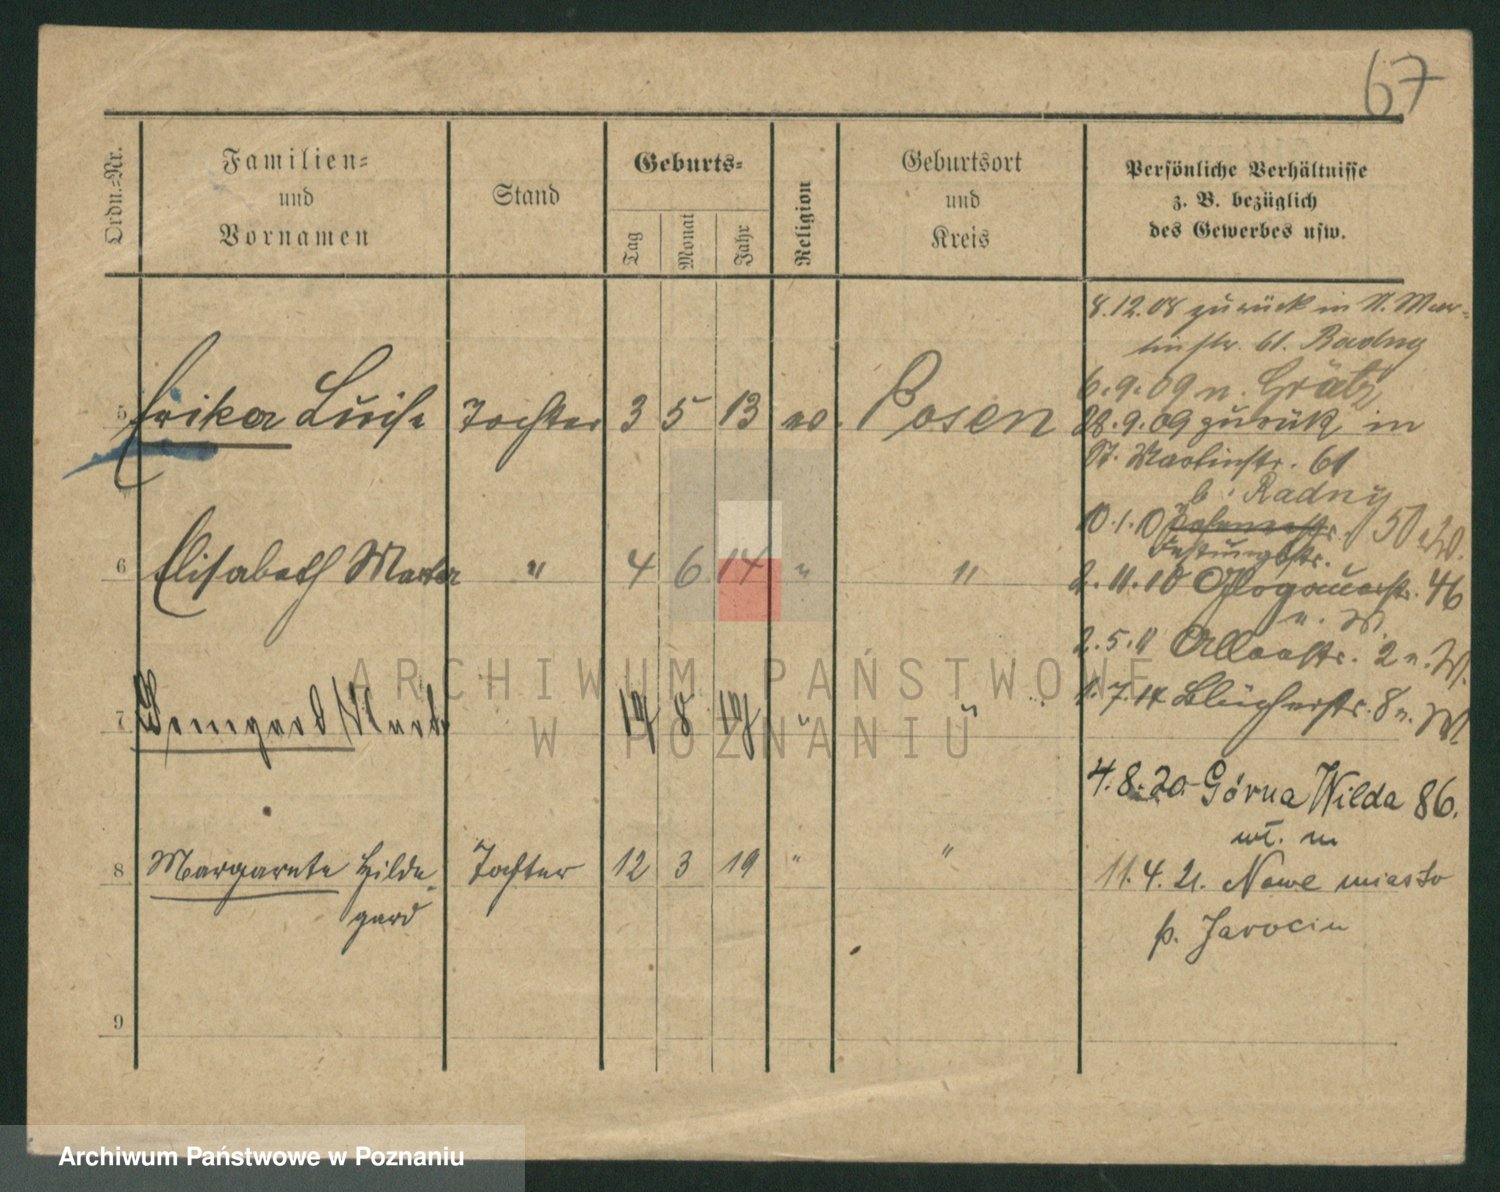 67
Ordn.=Nr.
Familien=
und
Vornamen
Stand
Geburts=
Tag
Monat
Jahr
Religion
Geburtsort
und
Kreis
Persönliche Verhältnisse
z. B. bezüglich
des Gewerbes usw.
8.12.08 zurück in St. Mar-
tinstr. 61. Radny
6.9.09 n. Grätz
5 Erika Luise Tochter 3 5 13 ev. Posen
28.9.09 zurück in
St. Martinstr. 61
b. Radny
10.1.10 50
Festungstr.
6 Elisabeth Marta " 4 6 14 " "
2.11.10 Glogauerstr. 46
n. W.
2.5.11 2 n. W.
7 8 " "
1.7.14 Blücherstr. 8 n. W.
4.8.20. Górna Wilda 86.
wł. m
8 Margarete Hilde- Tochter 12 3 19 " "
gard
11.4.21. Nowe miasto
p. Jarocin
9
ARCHIWUM PAŃSTWOWE
W POZNANIU
Archiwum Państwowe w Poznaniu